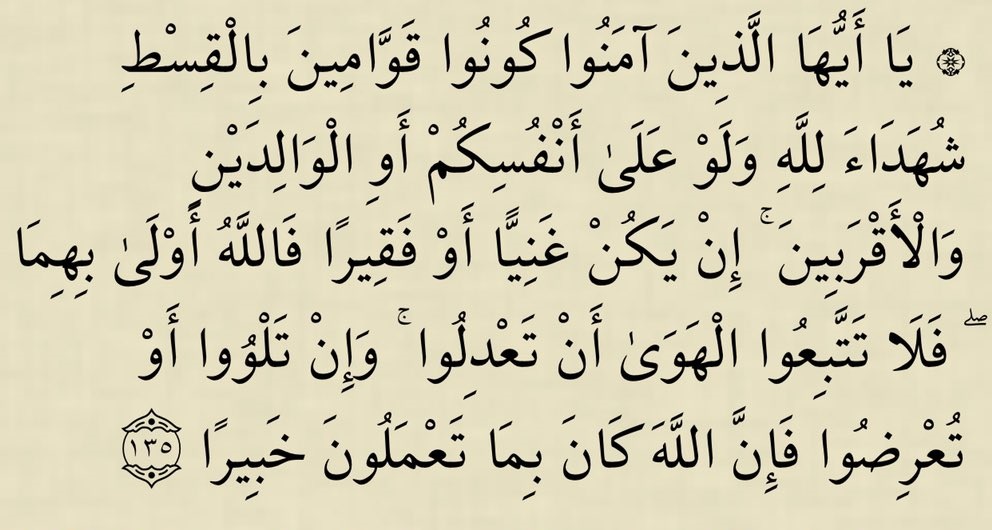 ۞ يَا أَيُّهَا الَّذِينَ آمَنُوا كُونُوا قَوَّامِينَ بِالْقِسْطِ
شُهَدَاءَ لِلَّهِ وَلَوْ عَلَىٰ أَنْفُسِكُمْ أَوِ الْوَالِدَيْنِ
وَالْأَقْرَبِينَ ۚ إِنْ يَكُنْ غَنِيًّا أَوْ فَقِيرًا فَاللَّهُ أَوْلَىٰ بِهِمَا
ۖ فَلَا تَتَّبِعُوا الْهَوَىٰ أَنْ تَعْدِلُوا ۚ وَإِنْ تَلْوُوا أَوْ
تُعْرِضُوا فَإِنَّ اللَّهَ كَانَ بِمَا تَعْمَلُونَ خَبِيرًا ۝١٣٥